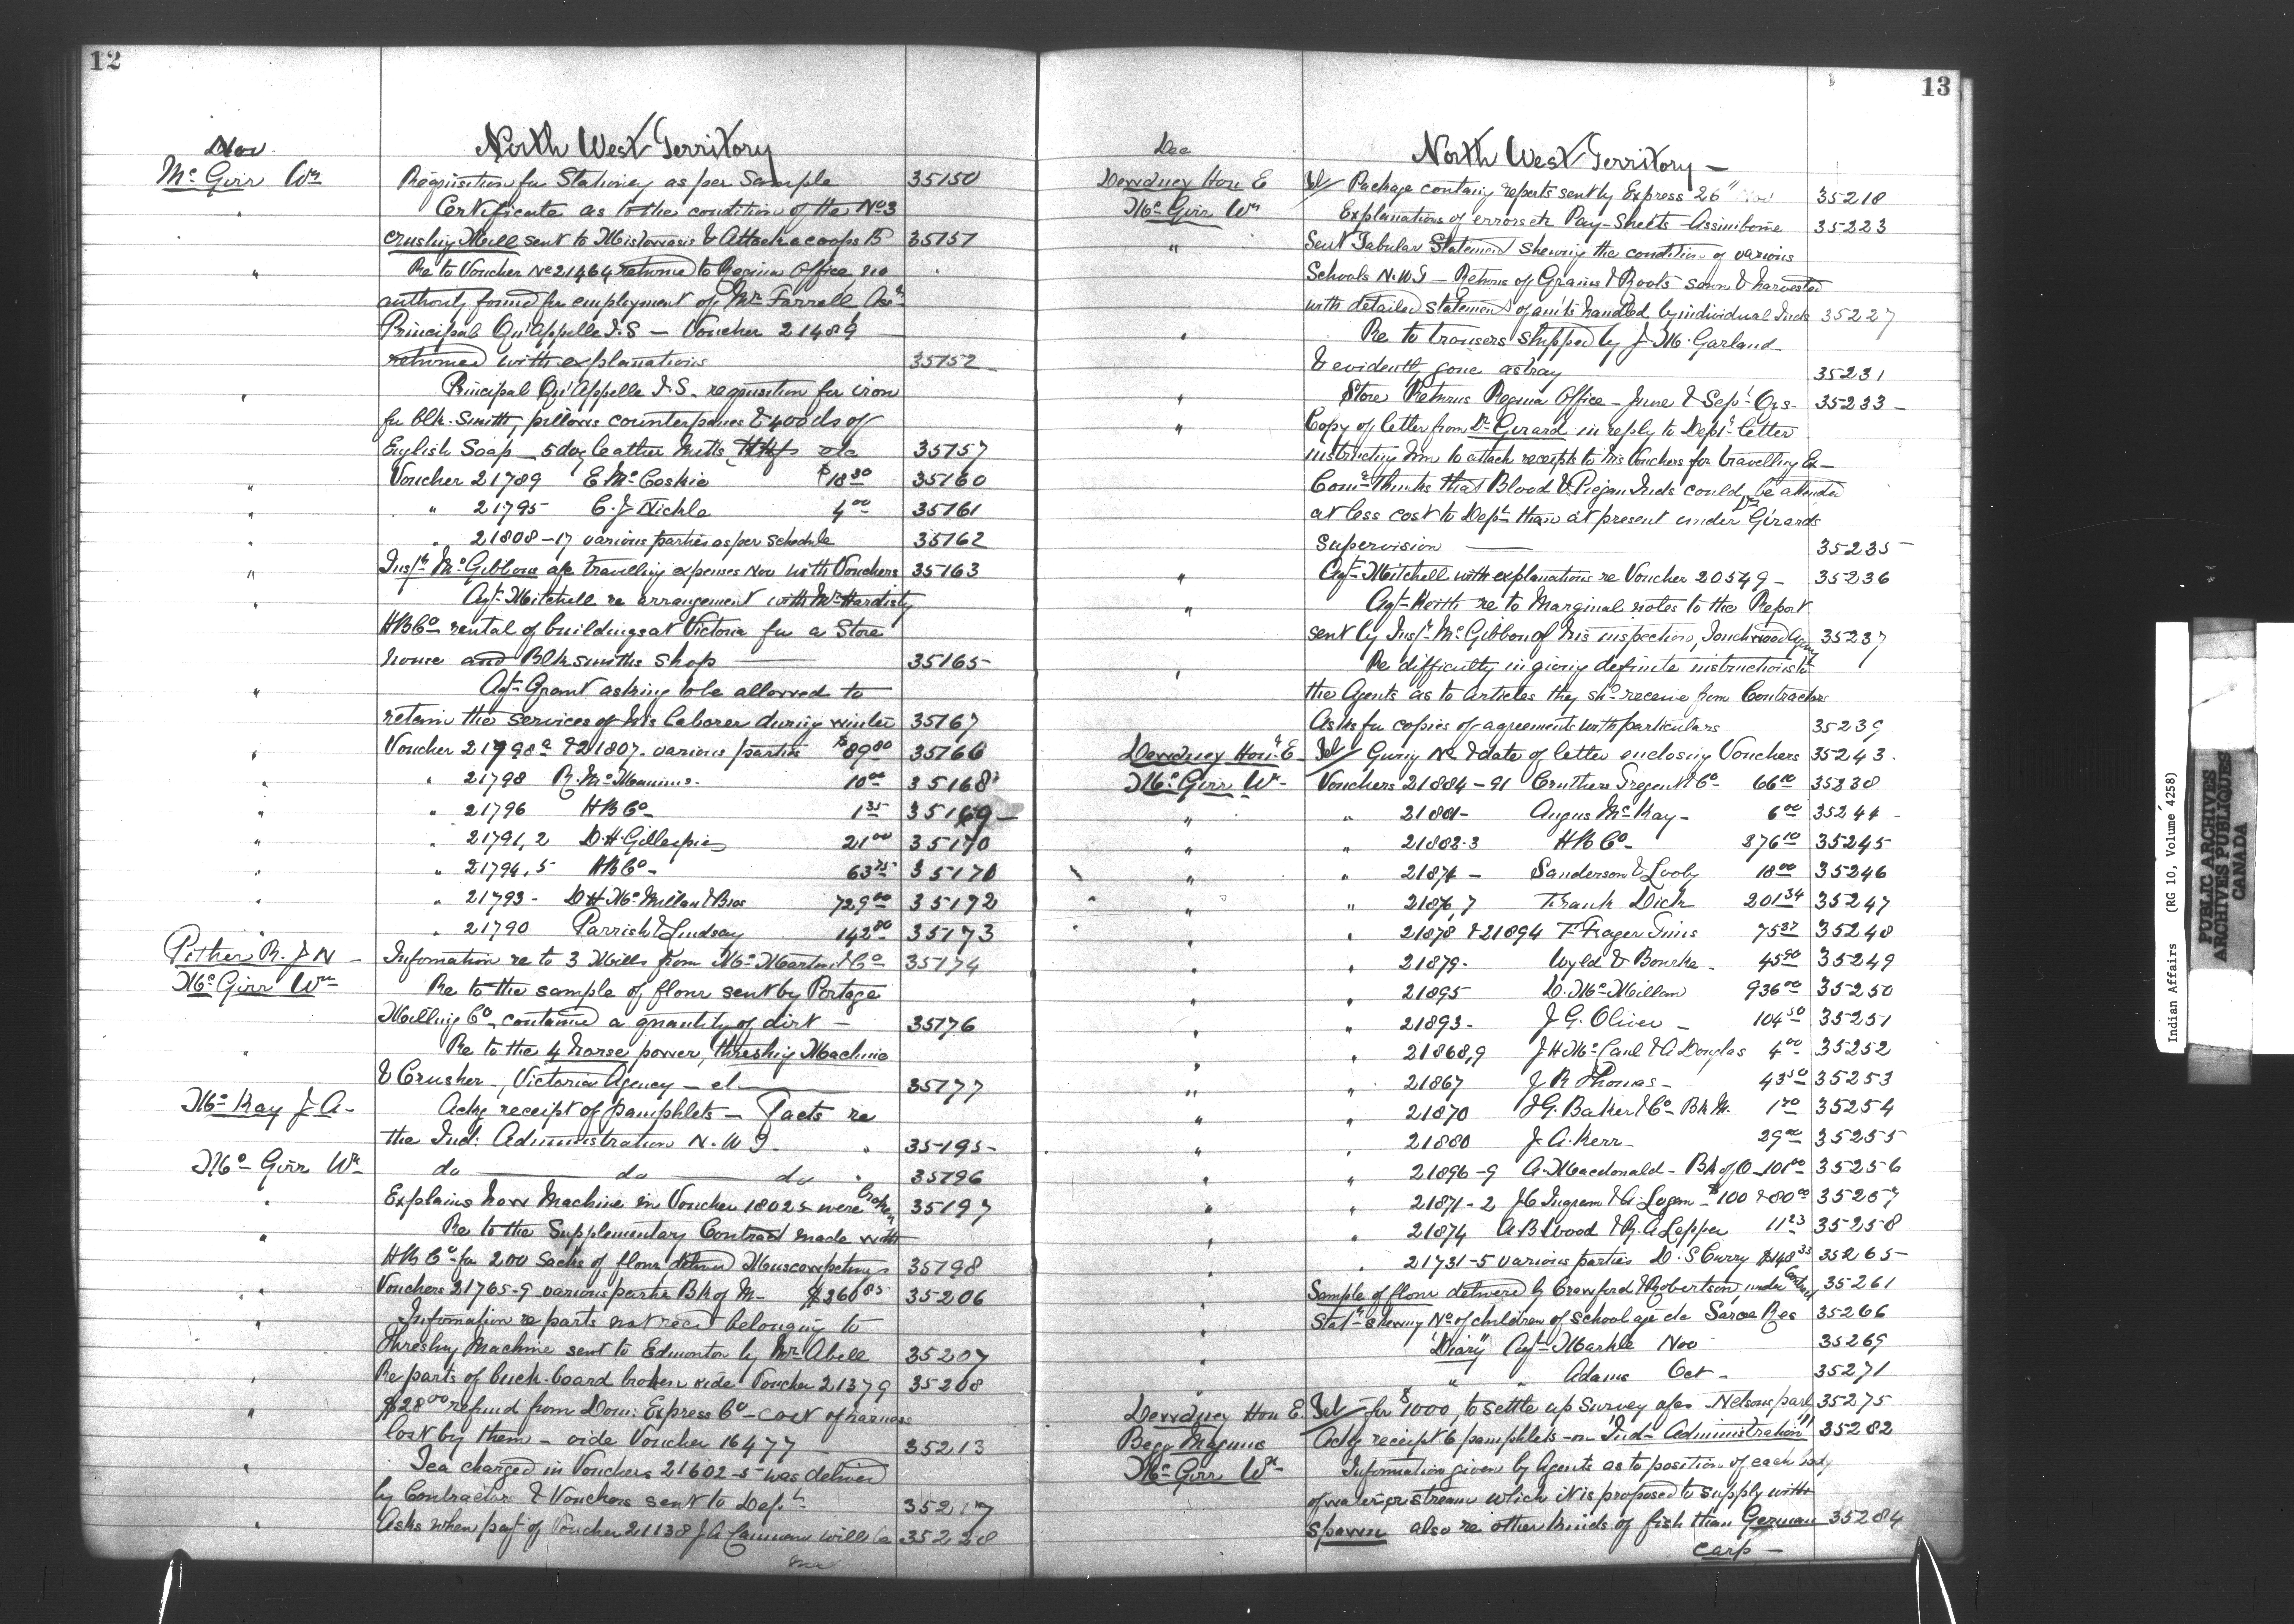 12
Nov
North West Territory
McGirr Wm Requisition for Stationery as per Sample 35150
" Certificate as to the condition of the No 3
crushing Mill sent to & Attackacoops B 35151
" Re to Voucher No 21464 returned to Regina Office no
authority found for employment of Mr Farrell Asst
Principal Qu'Appelle I.S - Voucher 21489
returned with explanations 35152
" Principal Qu'Appelle I.S. requisition for iron
for blk. Smith, pillows counterpanes & goods of
English Soap - 5 doz leather Mitts etc 35157
" Voucher 21789 E McCoskie $18.30 35160
" " 21795 C. J Nichle 4.00 35161
" " 21808-17 various parties as per Schedule 35162
" Inspr McGibbon a/c travelling expenses Nov with Vouchers 35163
" Agt Mitchell re arrangement with Mr Hardisty
HB Co rental of buildings at Victoria for a Store
house and Blksmiths shop 35165
" Agt Grant asking to be allowed to
retain the services of his laborer during winter 35167
" Voucher 21798a & 21807 various parties $89.80 35166
" " 21798 R. McManus 10.00 35168
" " 21796 HB Co 1.35 35169
" " 21791,2 D. H Gillespie 21.00 35170
" " 21794,5 HB Co 63.75 35171
" " 21793 - D H McMillan & Bros 729.00 35172
" " 21790 Parrish & Lindsay 142.80 35173
Pither R. J N Information re to 3 Mills from & Co 35174
McGirr Wm Re to the sample of flour sent by Portage
Milling Co contained a quantity of dirt - 35176
" Re to the 4 horse power, threshing Machine
& Crusher, Victoria Agency - 35177
McKay J A - Ackg receipt of pamphlets - Facts re
the Ind: Administration N. W T. 35195
McGirr Wm do do do 35196
" Explains how Machine in Voucher 18025 were broken 35197
" Re to the Supplementary Contract made with
HB Co for 200 Sacks of flour delivered Muscowpetungs 35198
" Vouchers 21765-9 various parties Bk of M - $260.85 35206
" Information re parts not recd belonging to
threshing Machine sent to Edmonton by Mr Abell 35207
Re parts of buck-board broken vide Voucher 21379 35208
" $28.00 refund from Dom: Express Co - cost of harness
lost by them - vide Voucher 16477 35213
" Tea charged in Vouchers 21602-5 was delivered
by Contractor & Vouchers sent to Dept 35217
" Asks when payt of Voucher 21138 J A Cameron will be 35220
13
Dec
North West Territory -
Dewdney Hon E Tel/ Package containg reports sent by Express 26" Nov 35218
McGirr Wm Explanations of errors etc Pay-Sheets Assiniboine 35223
" Sent Tabular Statement shewing the condition of various
Schools N.W.T - Returns of Grains & Roots sown & harvested
with detailed statement of am'ts handled by individual Inds 35227
" Re to trousers shipped by J. M. Garland
& evidently gone astray 35231
" Store Returns Regina Office - June & Sept Qrs - 35233 -
" Copy of letter from Dr Girard in reply to Dept letter
instructing him to attach receipts to his Vouchers for travelling Ex -
Comr thinks that Blood & Piegan Inds could be attended
at less cost to Dept than at present under Dr Girards
supervision 35235
" Agt Mitchell with explanations re Voucher 20549 - 35236
" Agt Keith re to Marginal notes to the Report
sent by Inspr McGibbon of his inspection, Touchwood Agency 35237
" Re difficulty in giving definite instructions to
the Agents as to articles they shd receive from Contractors
Asks for copies of agreements with particulars 35239
Dewdney Hon. E Tel/ Giving No & date of letter enclosing Vouchers 35243
McGirr Wm Vouchers 21884-91 Cruthers Tregent & Co 66.10 35238
" " 21881 - Angus McKay - 6.00 35244
" " 21882.3 HB Co - 876.10 35245
" " 21871 - Sanderson & Looby 18.00 35246
" " 21876,7 Frank Dick 201.34 35247
" " 21878 & 21894 T. Frager Tims 75.37 35248
" " 21879 - Wyld & Bourke - 45.90 35249
" " 21895 D. McMillan 936.00 35250
" " 21893 - J G. Oliver - 104.50 35251
" " 21868,9 J H McCaul & A Douglas 4.00 35252
" " 21867 J R Thomas - 43.50 35253
" " 21870 I G. Baker & Co Bk M. 1.70 35254
" " 21880 J. A. Kerr - 29.00 35255
" " 21896-9 A. Macdonald - Bk of O - 101.00 35256
" " 21871-2 J C Ingram & A. Logan - $100 & 80.00 35257
" " 21874 A B Wood & R. A Lapper 11.23 35258
" " 21731-5 various parties D. S Curry $148.33 35265
" Sample of flour delivered by Crawford & Robertson under Contract 35261
" Statmt shewing No of children of school age do Sarcee Res 35266
" "Diary" Agt Markle Nov 35269
" " " Adams Oct - 35271
Dewdney Hon E. Tel/ for $1000 to settle up Survey a/cs - Nelsons party 35275
Begg Magnus Ackg receipt 6 pamphlets - on "Ind - Administration" 35282
McGirr Wm Information given by Agents as to position of each body
of water or stream which it is proposed to supply with
spawn also re other kinds of fish than German 35284
carp -
Indian Affairs (RG 10, Volume 4258)
PUBLIC ARCHIVES
ARCHIVES PUBLIQUES
CANADA